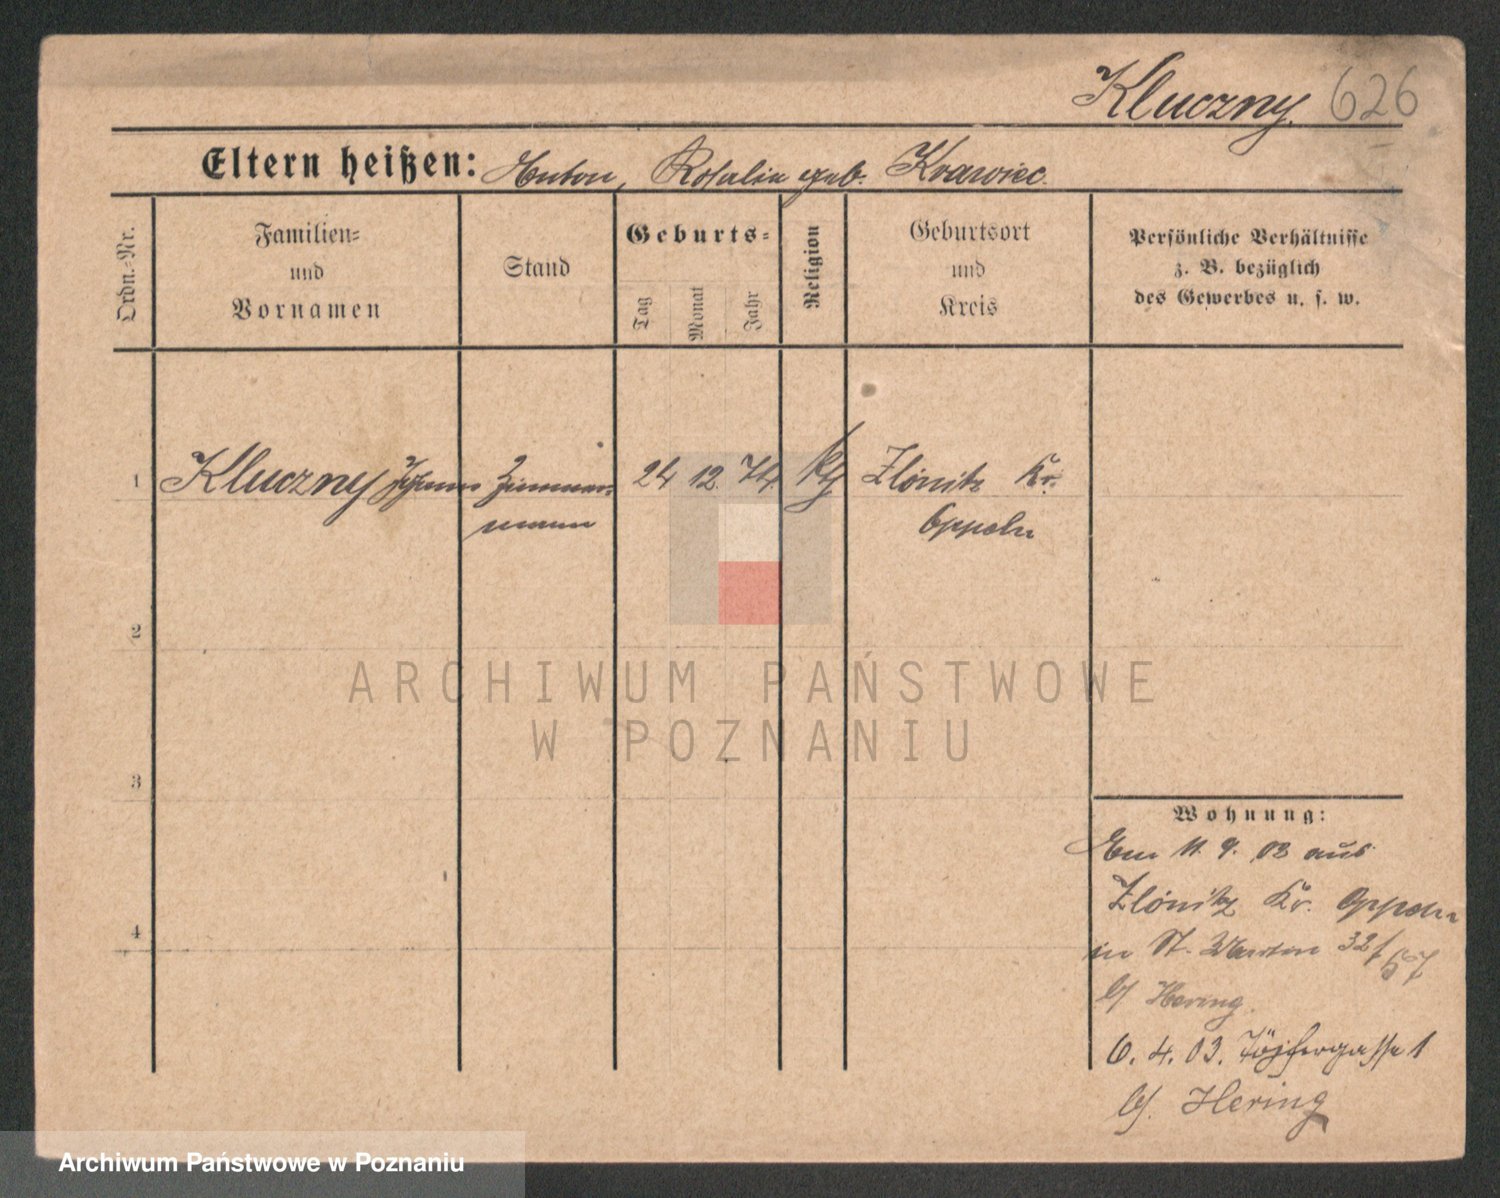 Kluczny. 626
Eltern heißen: Anton, Rosalie geb. Krawiec.
Ordn.-Nr.
Familien-
und
Vornamen
Stand
Geburts-
Tag
Monat
Jahr
Religion
Geburtsort
und
Kreis
Persönliche Verhältnisse
z. B. bezüglich
des Gewerbes u. s. w.
1 Kluczny Johann Zimmer- 24 12. 74. kth Zlönitz Kr.
mann Oppeln
2
3
4
Wohnung:
Am 11. 9. 02 aus
Zlönitz Kr. Oppeln
in St. Martin 32/57
b/ Hering.
6. 4. 03. Töpfergasse 1
b/. Hering
ARCHIWUM PAŃSTWOWE
W POZNANIU
Archiwum Państwowe w Poznaniu